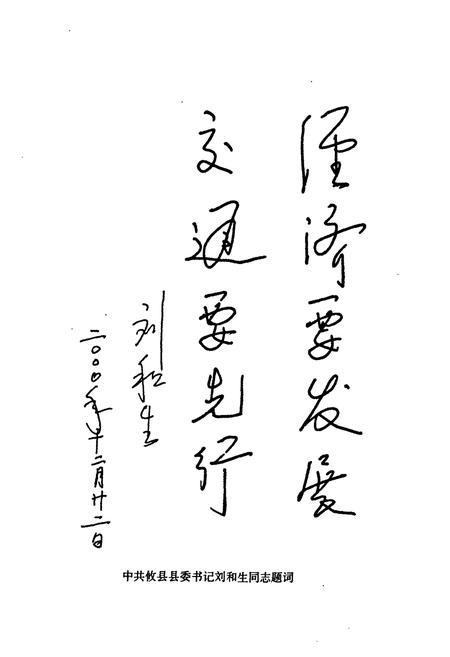 经济要发展
交通要先行
刘和生
二〇〇〇年十二月廿二日
中共攸县县委书记刘和生同志题词